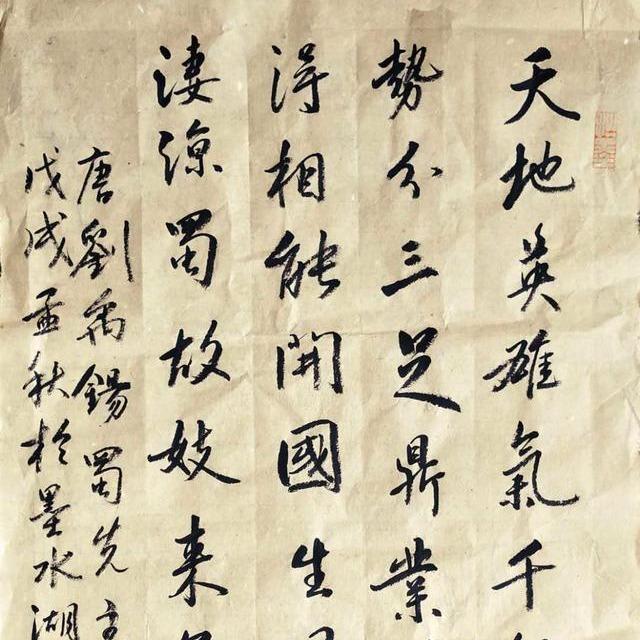 天地英雄氣千
勢分三足鼎業
得相能開國生
淒涼蜀故妓来
唐劉禹錫蜀先主
戊戌孟秋於墨水湖